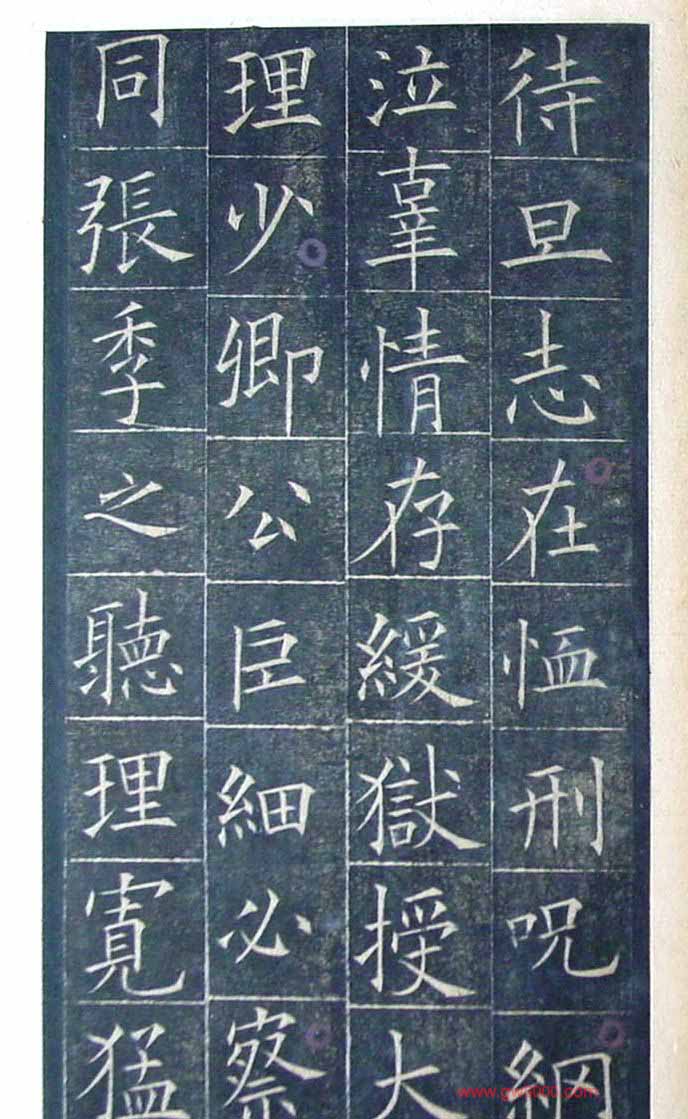 待旦志在恤刑呪網
泣辜情存緩獄授大
理少卿公巨細必察
同張季之聽理寬猛
www.gw8000.com